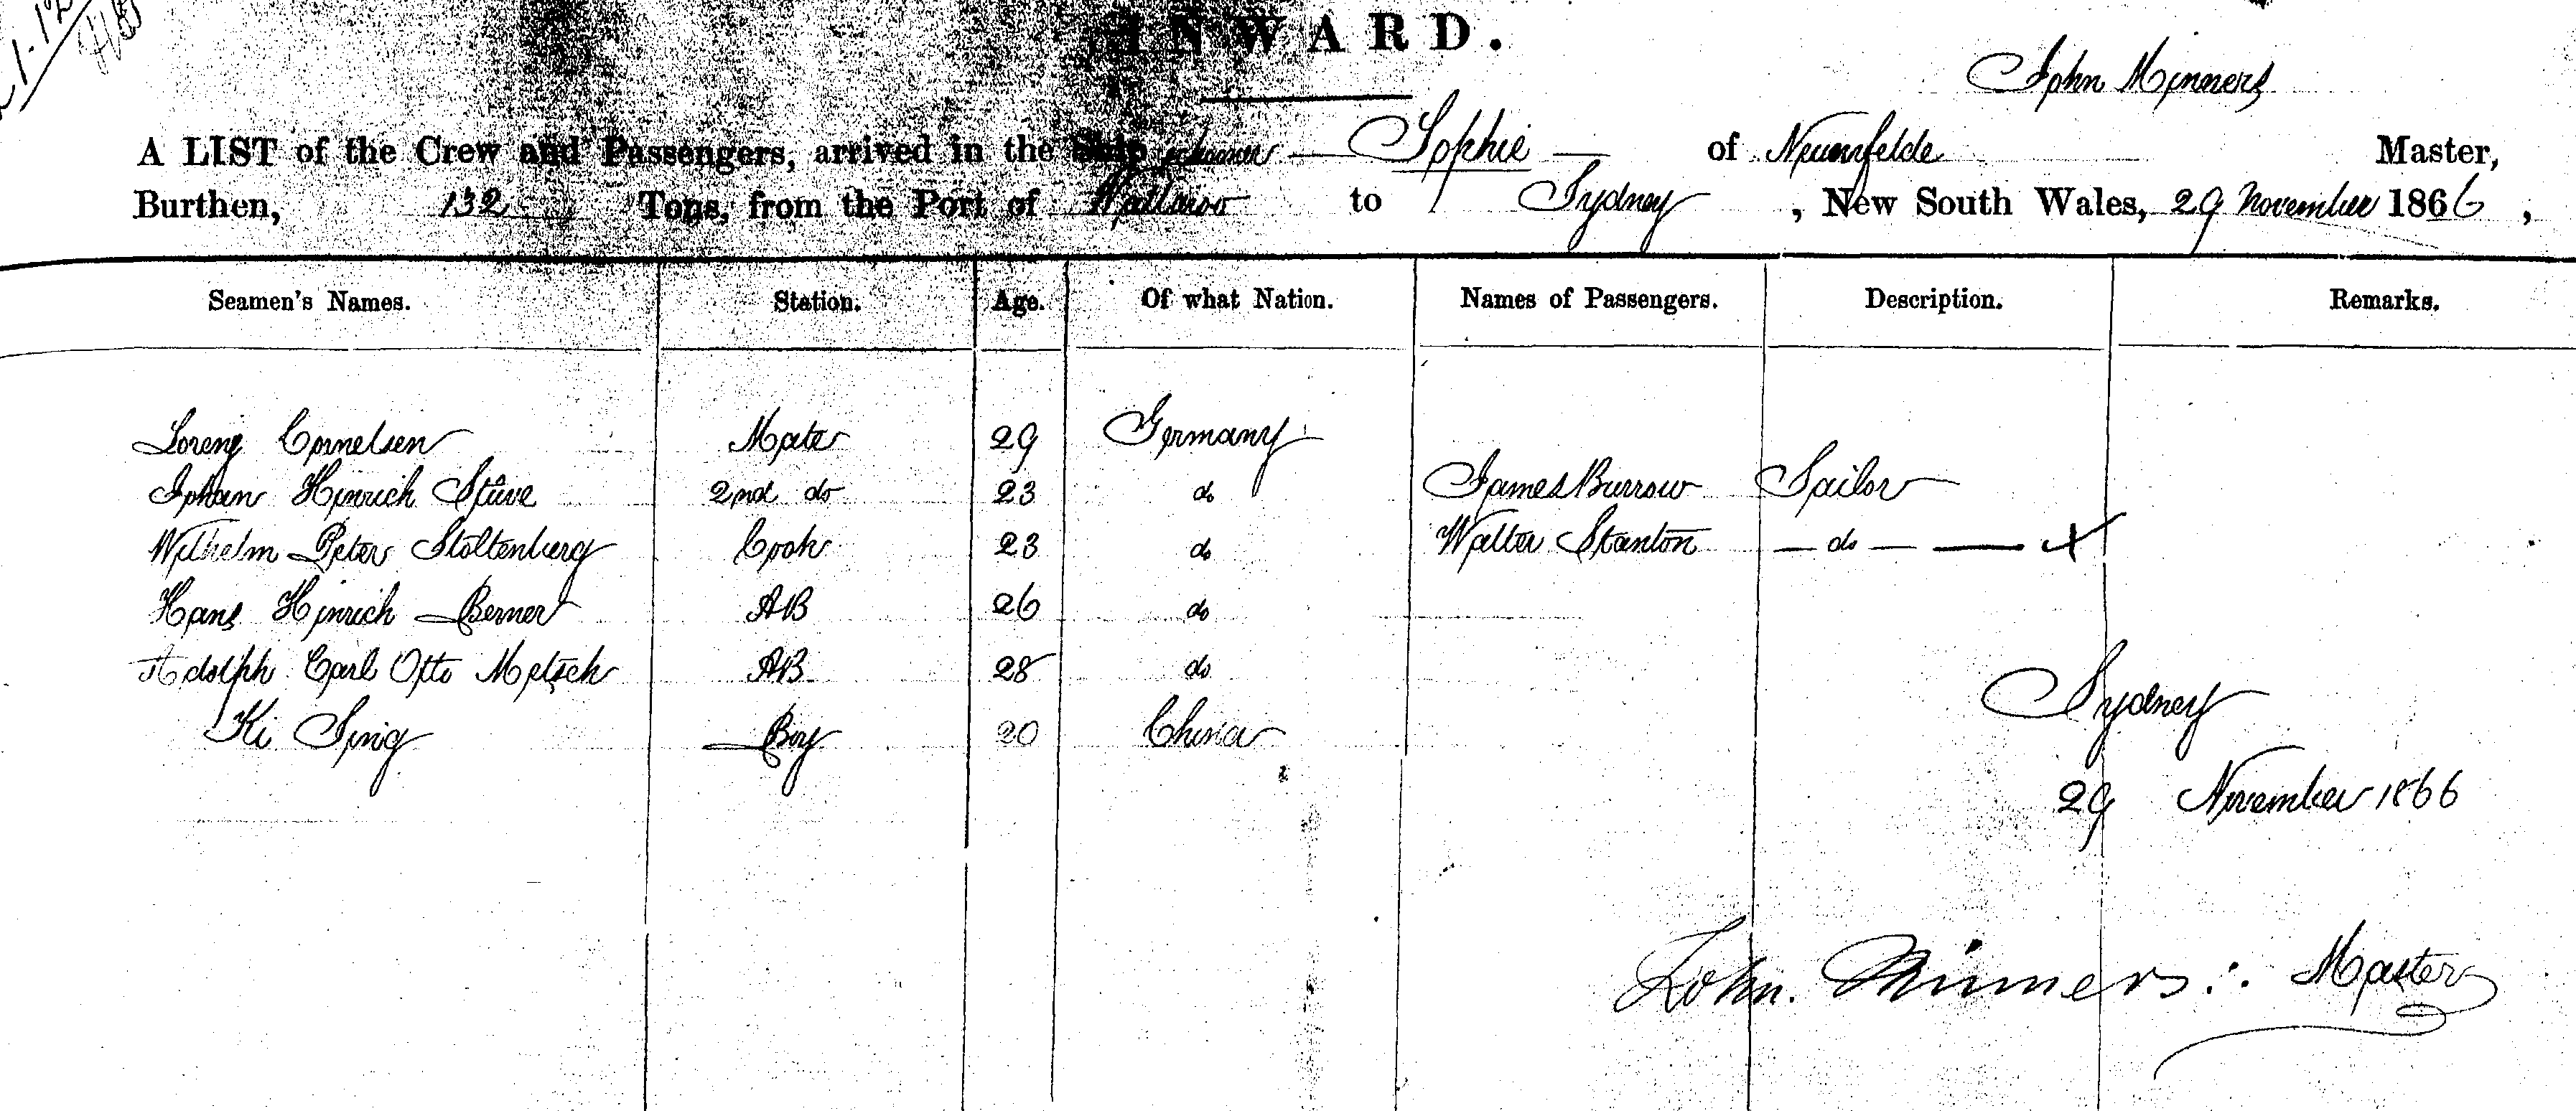 INWARD.
John Minners
A LIST of the Crew and Passengers, arrived in the Ship schooner — Sophie — of Neuenfelde Master,
Burthen, 132 Tons, from the Port of Wallaroo to Sydney, New South Wales, 29 November 1866,
Seamen's Names. Station. Age. Of what Nation. Names of Passengers. Description. Remarks.
Lorenz Cornelsen Mate 29 Germany
Johan Hinrich Stüve 2nd do 23 do James Burrow Sailor
Wilhelm Peter Stoltenberg Cook 23 do Walter Stanton — do — — x
Hans Hinrich Berner AB 26 do
Adolph Carl Otto Metsch AB 28 do
Sydney
Ki Sing Boy 20 China
29 November 1866
John. Minners. Master